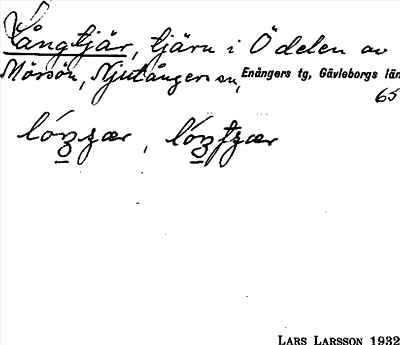 Långtjär, tjärn i Ö delen av
Mörsön, Njutångers sn, Enångers tg, Gävleborgs län
65
LARS LARSSON 1932